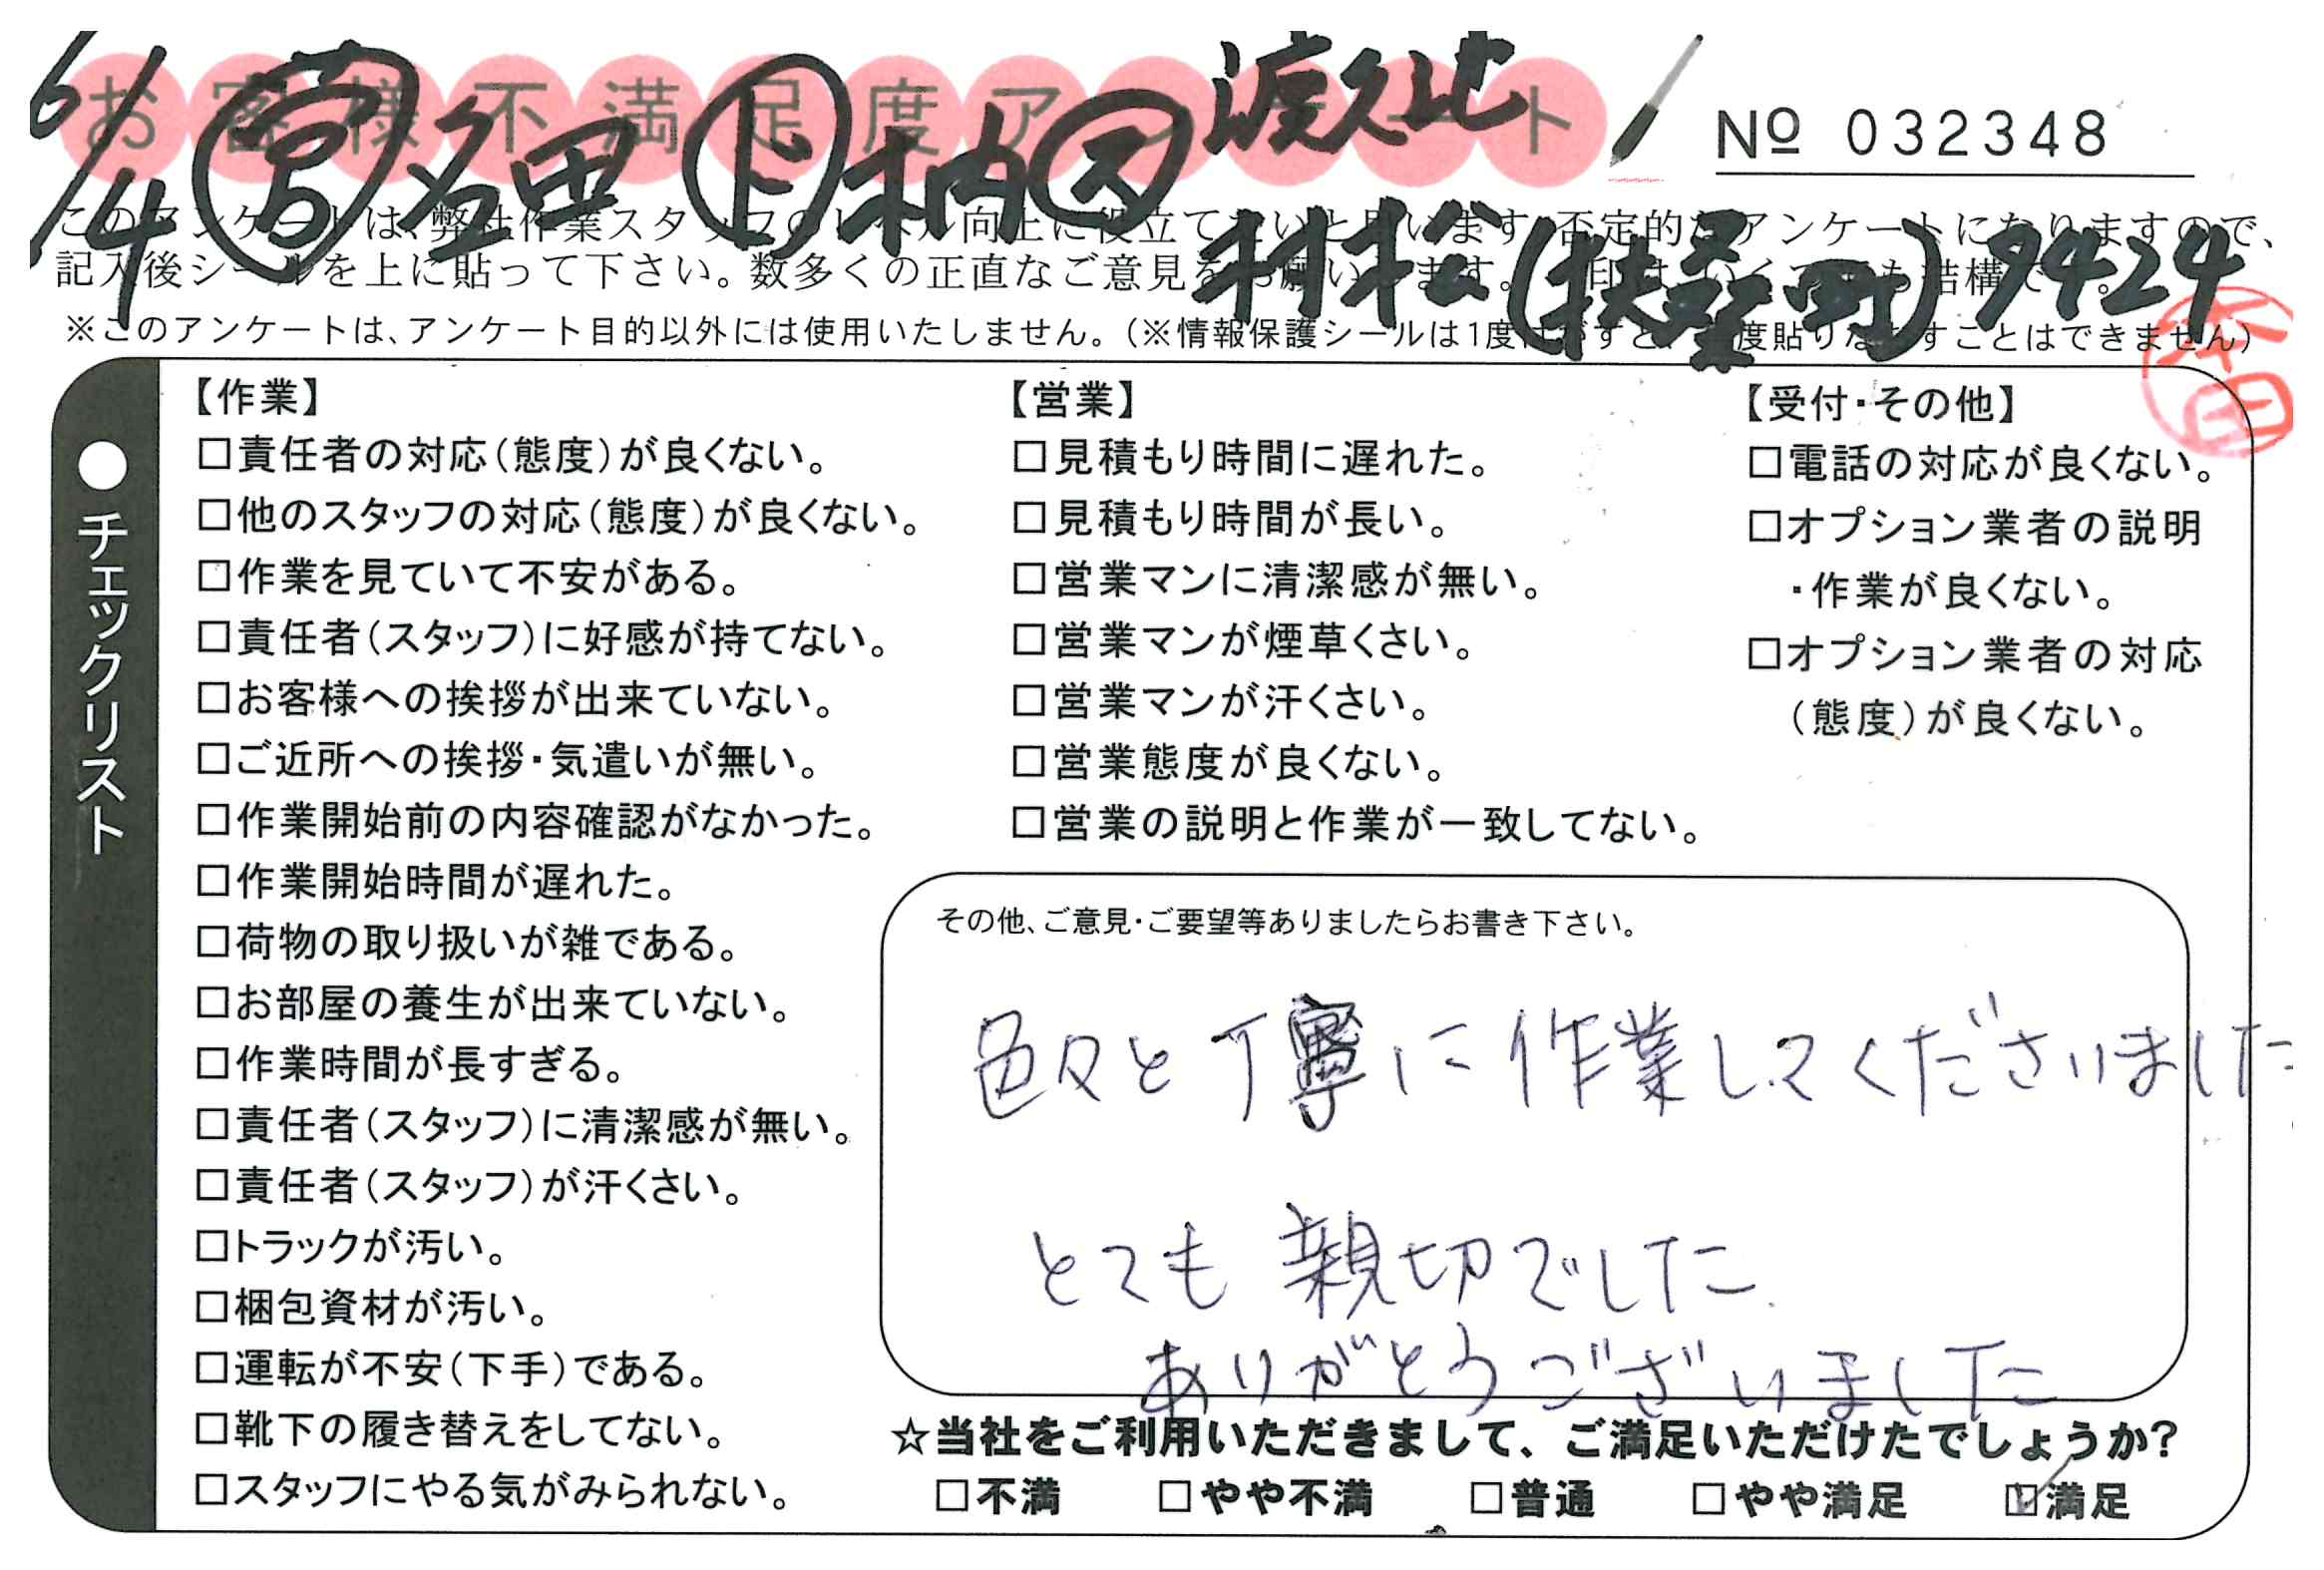 お客様不満足度アンケート
6/4 営 名田 ト 柄 ス 渡久比
村松(扶桑町) 9424
№ 032348
このアンケートは、弊社作業スタッフのレベル向上に役立てたいと思います。否定的なアンケートになりますので、
記入後シールを上に貼って下さい。数多くの正直なご意見をお願いします。
※このアンケートは、アンケート目的以外には使用いたしません。(※情報保護シールは1度はがすと、再度貼りなおすことはできません)
本田
●チェックリスト
【作業】
□責任者の対応(態度)が良くない。
□他のスタッフの対応(態度)が良くない。
□作業を見ていて不安がある。
□責任者(スタッフ)に好感が持てない。
□お客様への挨拶が出来ていない。
□ご近所への挨拶・気遣いが無い。
□作業開始前の内容確認がなかった。
□作業開始時間が遅れた。
□荷物の取り扱いが雑である。
□お部屋の養生が出来ていない。
□作業時間が長すぎる。
□責任者(スタッフ)に清潔感が無い。
□責任者(スタッフ)が汗くさい。
□トラックが汚い。
□梱包資材が汚い。
□運転が不安(下手)である。
□靴下の履き替えをしてない。
□スタッフにやる気がみられない。
【営業】
□見積もり時間に遅れた。
□見積もり時間が長い。
□営業マンに清潔感が無い。
□営業マンが煙草くさい。
□営業マンが汗くさい。
□営業態度が良くない。
□営業の説明と作業が一致してない。
【受付・その他】
□電話の対応が良くない。
□オプション業者の説明
・作業が良くない。
□オプション業者の対応
(態度)が良くない。
その他、ご意見・ご要望等ありましたらお書き下さい。
色々と丁寧に作業してくださいました
とても親切でした.
ありがとうございました
☆当社をご利用いただきまして、ご満足いただけたでしょうか?
□不満 □やや不満 □普通 □やや満足 ☑満足